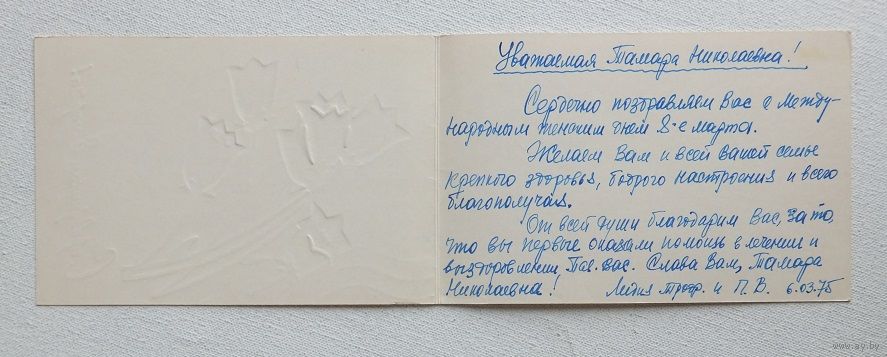 Уважаемая Тамара Николаевна!
Сердечно поздравляем Вас с Между-
народным женским днем 8-е марта.
Желаем Вам и всей Вашей семье
крепкого здоровья, бодрого настроения и всего
благополучия.
От всей души благодарим Вас, за то,
что вы первые оказали помощь в лечении и
выздоровлении, Вас. Слава Вам, Тамара
Николаевна! Лидия и П. В. 6.03.75
www.ay.by